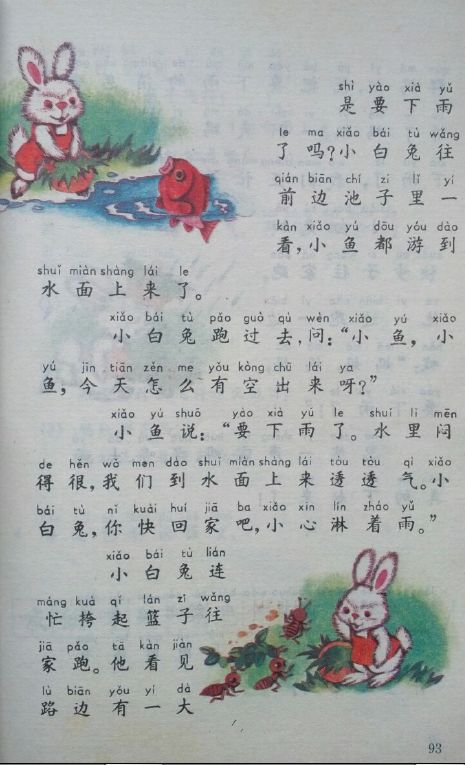 shì yào xià yǔ
是要下雨
le ma xiǎo bái tù wǎng
了吗?小白兔往
qián biān chí zi lǐ yí
前边池子里一
kàn xiǎo yú dōu yóu dào
看,小鱼都游到
shuǐ miàn shàng lái le
水面上来了。
xiǎo bái tù pǎo guò qù wèn xiǎo yú xiǎo
小白兔跑过去,问:“小鱼,小
yú jīn tiān zěn me yǒu kòng chū lái ya
鱼,今天怎么有空出来呀?”
xiǎo yú shuō yào xià yǔ le shuǐ lǐ mēn
小鱼说:“要下雨了。水里闷
de hěn wǒ men dào shuǐ miàn shàng lái tòu tòu qì xiǎo
得很,我们到水面上来透透气。小
bái tù nǐ kuài huí jiā ba xiǎo xīn lín zháo yǔ
白兔,你快回家吧,小心淋着雨。”
xiǎo bái tù lián
小白兔连
máng kuà qǐ lán zi wǎng
忙挎起篮子往
jiā pǎo tā kàn jiàn
家跑。他看见
lù biān yǒu yí dà
路边有一大
93